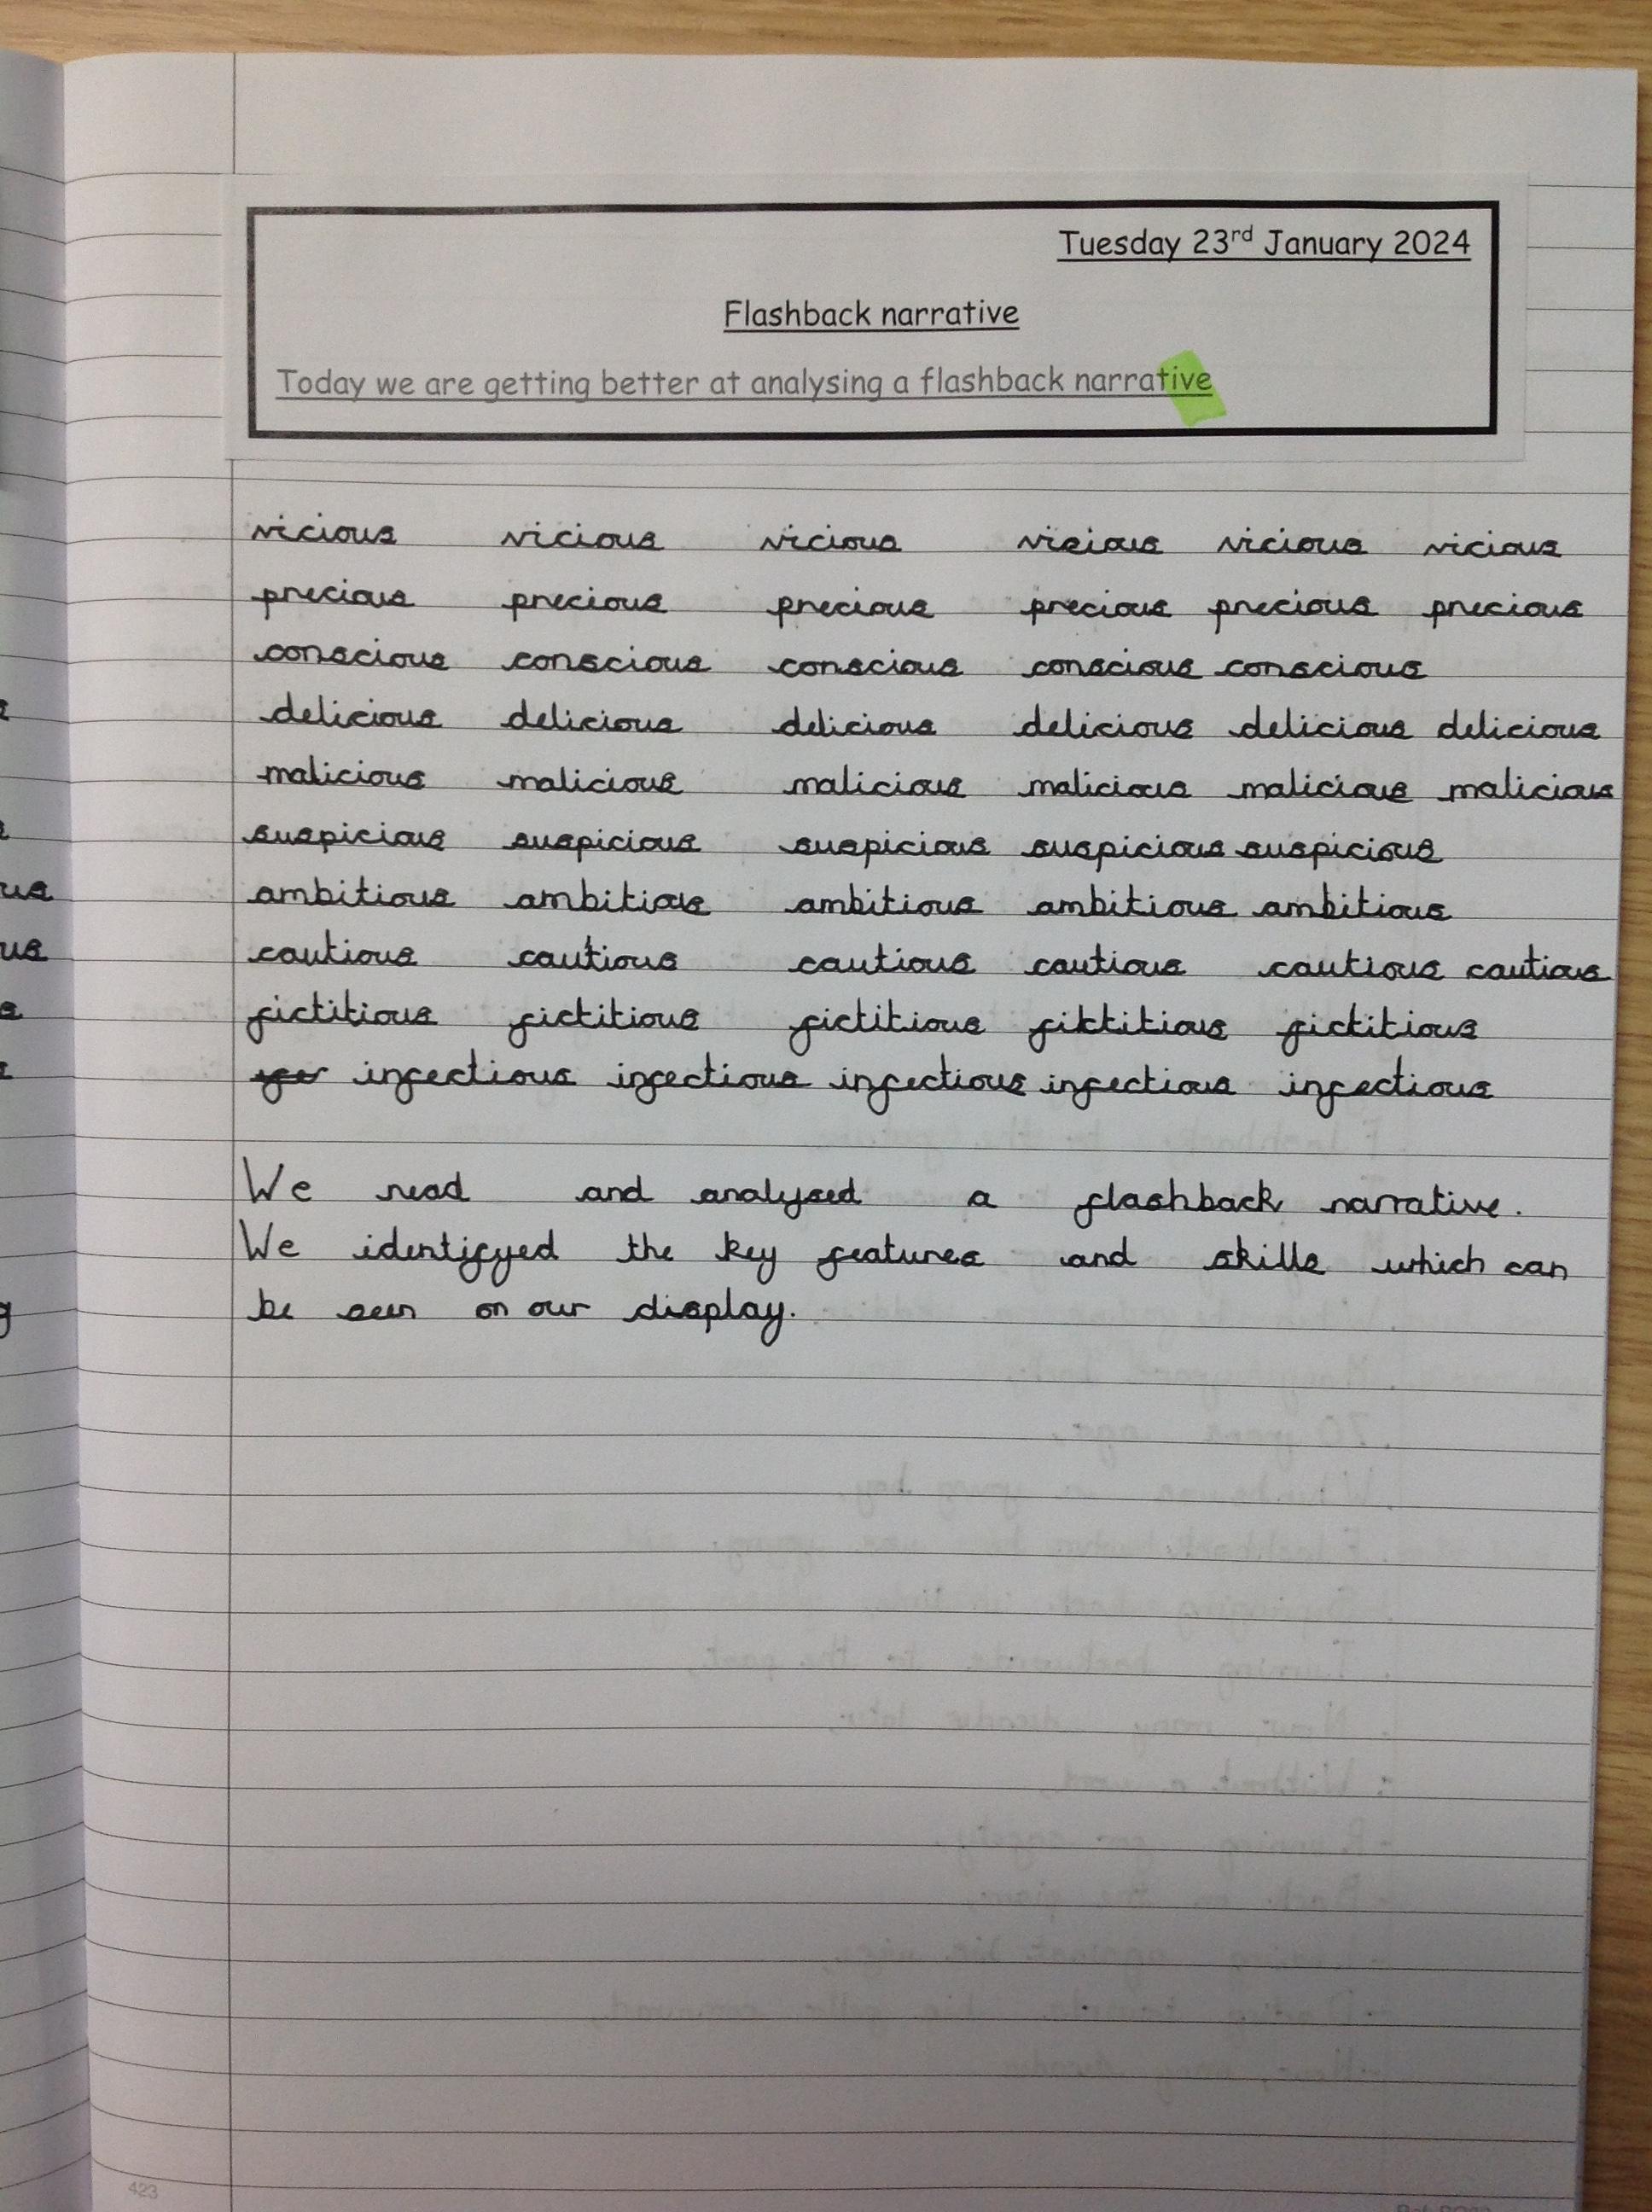 Tuesday 23rd January 2024
Flashback narrative
Today we are getting better at analysing a flashback narrative
vicious vicious vicious vicious vicious vicious
precious precious precious precious precious precious
conscious conscious conscious conscious conscious
delicious delicious delicious delicious delicious delicious
malicious malicious malicious malicious malicious malicious
suspicious suspicious suspicious suspicious suspicious
ambitious ambitious ambitious ambitious ambitious
cautious cautious cautious cautious cautious cautious
fictitious fictitious fictitious fiktitious fictitious
infectious infectious infectious infectious infectious
We read and analysed a flashback narrative.
We identifyed the key features and skills which can
be seen on our display.
423